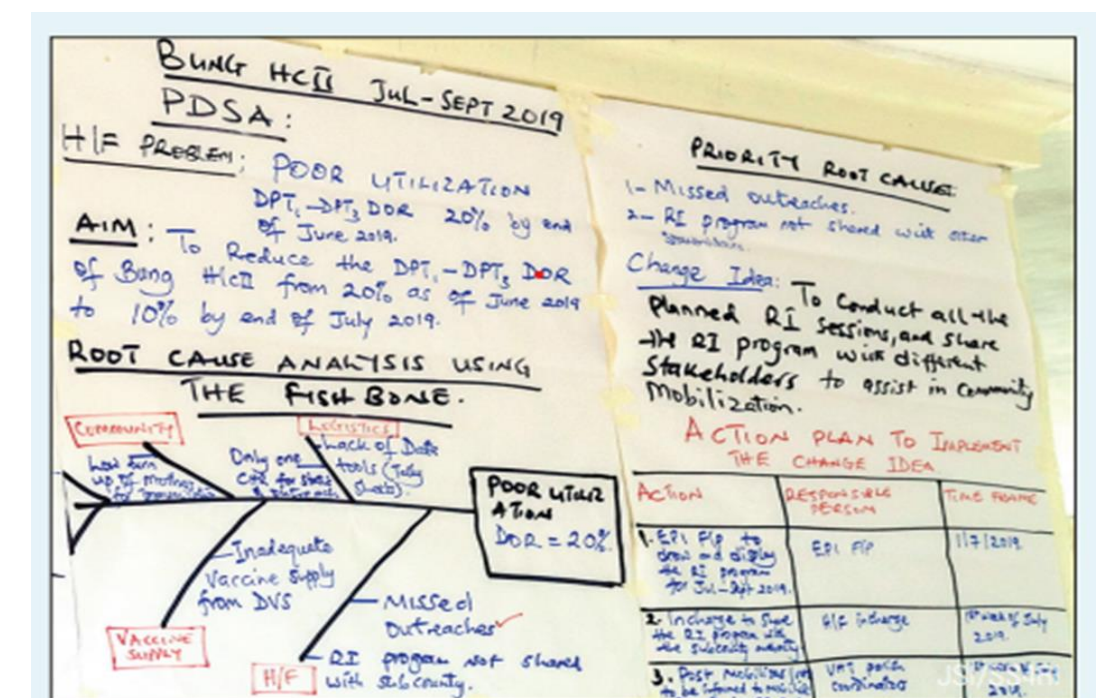 BUNG HCII JUL-SEPT 2019
PDSA:
H/F PROBLEM: POOR UTILIZATION
DPT1-DPT3 DOR 20% by end
of June 2019.
AIM: To Reduce the DPT1-DPT3 DOR
of Bung HCII from 20% as of June 2019
to 10% by end of July 2019.
ROOT CAUSE ANALYSIS USING
THE FISH BONE.
COMMUNITY
Low turn
up of mothers
for
LOGISTICS
Lack of Data
tools (Tally
sheets).
Only one
for static
&
POOR UTILIZ
ATION
DOR = 20%.
Inadequate
Vaccine supply
from DVS
VACCINE
SUPPLY
Missed
Outreaches ✓
RI program not shared
with subcounty.
H/F
PRIORITY ROOT CAUSE:
1- Missed outreaches.
2- RI program not shared with other
Change Idea: To Conduct all the
Planned RI Sessions, and share
the RI program with different
Stakeholders to assist in Community
Mobilization.
ACTION PLAN TO IMPLEMENT
THE CHANGE IDEA
ACTION RESPONSIBLE PERSON TIME FRAME
1. EPI F/p to
draw and display
the RI program
for Jul-Sept 2019.
EPI F/p
1/7/2019
2. Incharge to share
the RI program with
the subcounty
H/F incharge
1st week of July
2019.
3. Post
to be informed to
coordinator